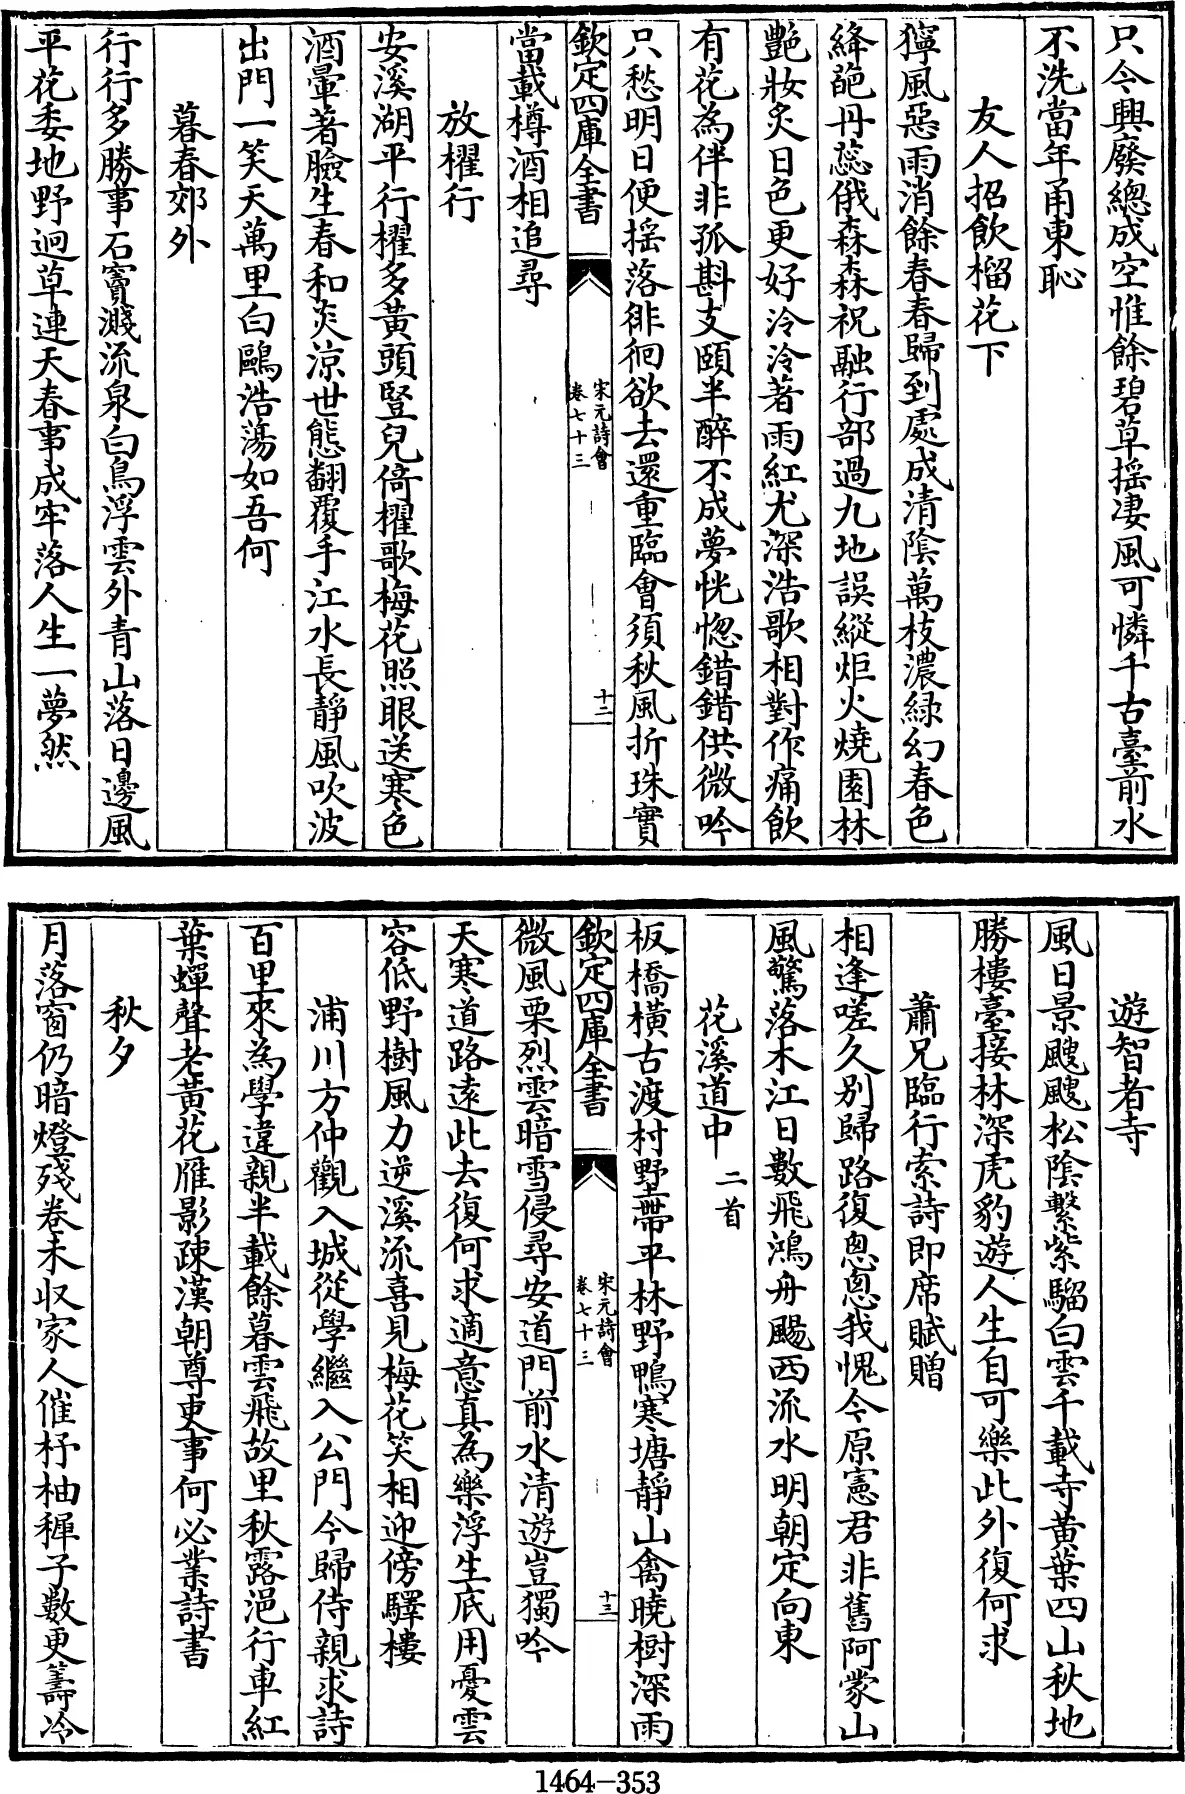 只今興廢總成空惟餘碧草揺凄風可憐千古臺前水
不洗當年甬東恥
友人招飲榴花下
獰風惡雨消餘春春歸到處成清陰萬枝濃緑幻春色
絳葩丹蕊俄森森祝融行部過九地誤縱炬火燒園林
艷妝炙日色更好泠泠著雨紅尤深浩歌相對作痛飲
有花為伴非孤斟支頤半醉不成夢恍惚錯錯供微吟
只愁明日便揺落徘徊欲去還重臨會須秋風折珠實
欽定四庫全書
宋元詩會
卷七十三
十二
當載樽酒相追尋
放櫂行
安溪湖平行櫂多黃頭豎兒倚櫂歌梅花照眼送寒色
酒暈著臉生春和炎涼世態翻覆手江水長靜風吹波
出門一笑天萬里白鷗浩蕩如吾何
暮春郊外
行行多勝事石竇濺流泉白鳥浮雲外青山落日邊風
平花委地野迥草連天春事成牢落人生一夢然
遊智者寺
風日景颼颼松陰繫紫騮白雲千載寺黃葉四山秋地
勝樓臺接林深虎豹遊人生自可樂此外復何求
蕭兄臨行索詩即席賦贈
相逢嗟久別歸路復怱怱我愧今原憲君非舊阿蒙山
風驚落木江日數飛鴻舟颺西流水明朝定向東
花溪道中 二首
板橋橫古渡村野帶平林野鴨寒塘靜山禽曉樹深雨
欽定四庫全書
宋元詩會
卷七十三
十三
微風栗烈雲暗雪侵尋安道門前水清遊豈獨吟
天寒道路遠此去復何求適意真為樂浮生底用憂雲
容低野樹風力逆溪流喜見梅花笑相迎傍驛樓
浦川方仲觀入城從學繼入公門今歸侍親求詩
百里來為學違親半載餘暮雲飛故里秋露浥行車紅
葉蟬聲老黃花雁影疎漢朝尊吏事何必業詩書
秋夕
月落窗仍暗燈殘卷未収家人催杼柚穉子數更籌冷
1464-353